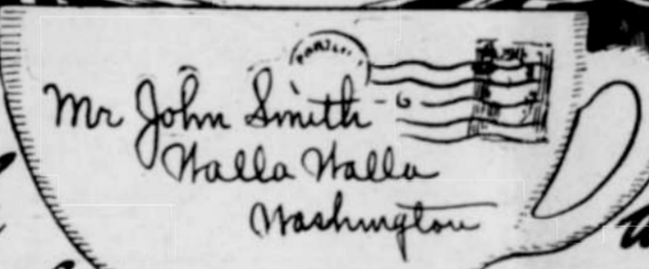 Mr John Smith
Walla Walla
Washington